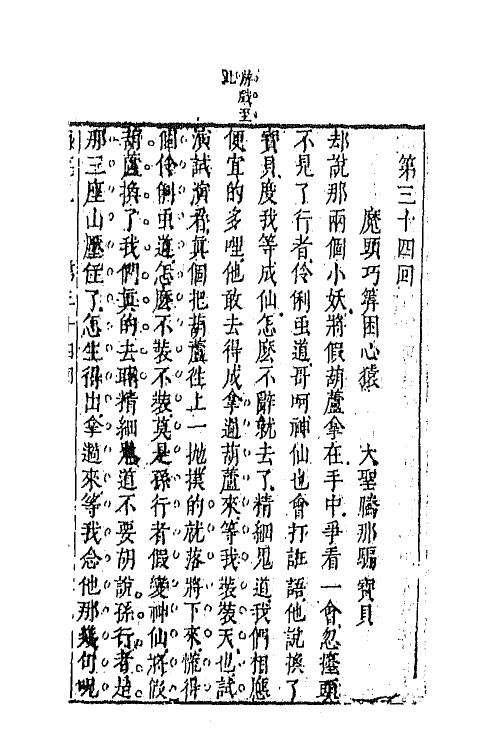 游戲至此
第三十四回
魔頭巧筭困心猿　大聖騰那騙寶貝
却說那兩個小妖將假葫蘆拿在手中爭看一會忽擡頭
不見了行者伶俐虫道哥呵神仙也會打誑語他說換了
寶貝度我等成仙怎麼不辭就去了精細鬼道我們相應
便宜的多哩他敢去得成拿過葫蘆來等我裝裝天也試
演試演看真個把葫蘆徃上一拋撲的就落將下來慌得
個伶俐虫道怎麼不裝不裝莫是孫行者假變神仙將假
葫蘆換了我們真的去啊精細鬼道不要胡說孫行者是
那三座山壓住了怎生得出拿過來等我念他那幾句呪
第三十四回